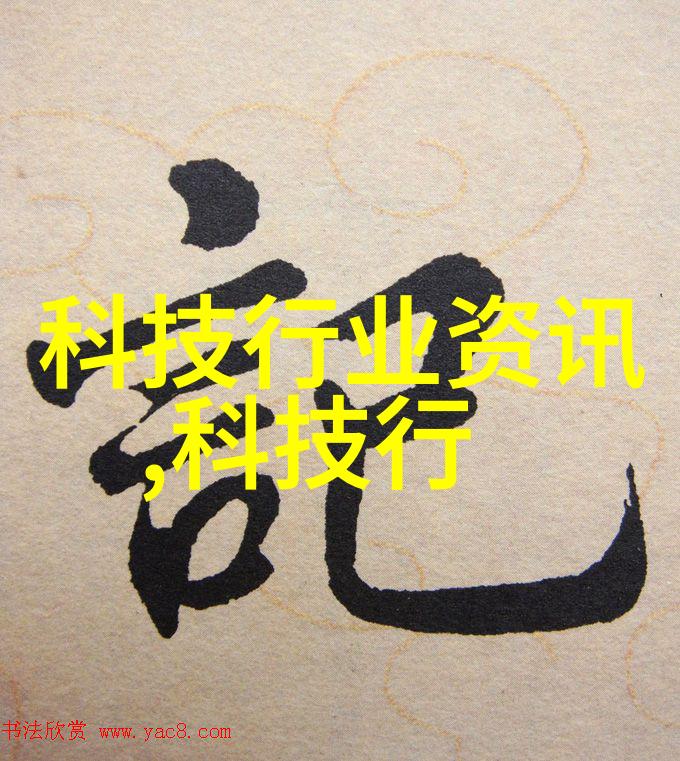 記
科技行业资讯
,科技行
书法欣赏 www.yac8.com